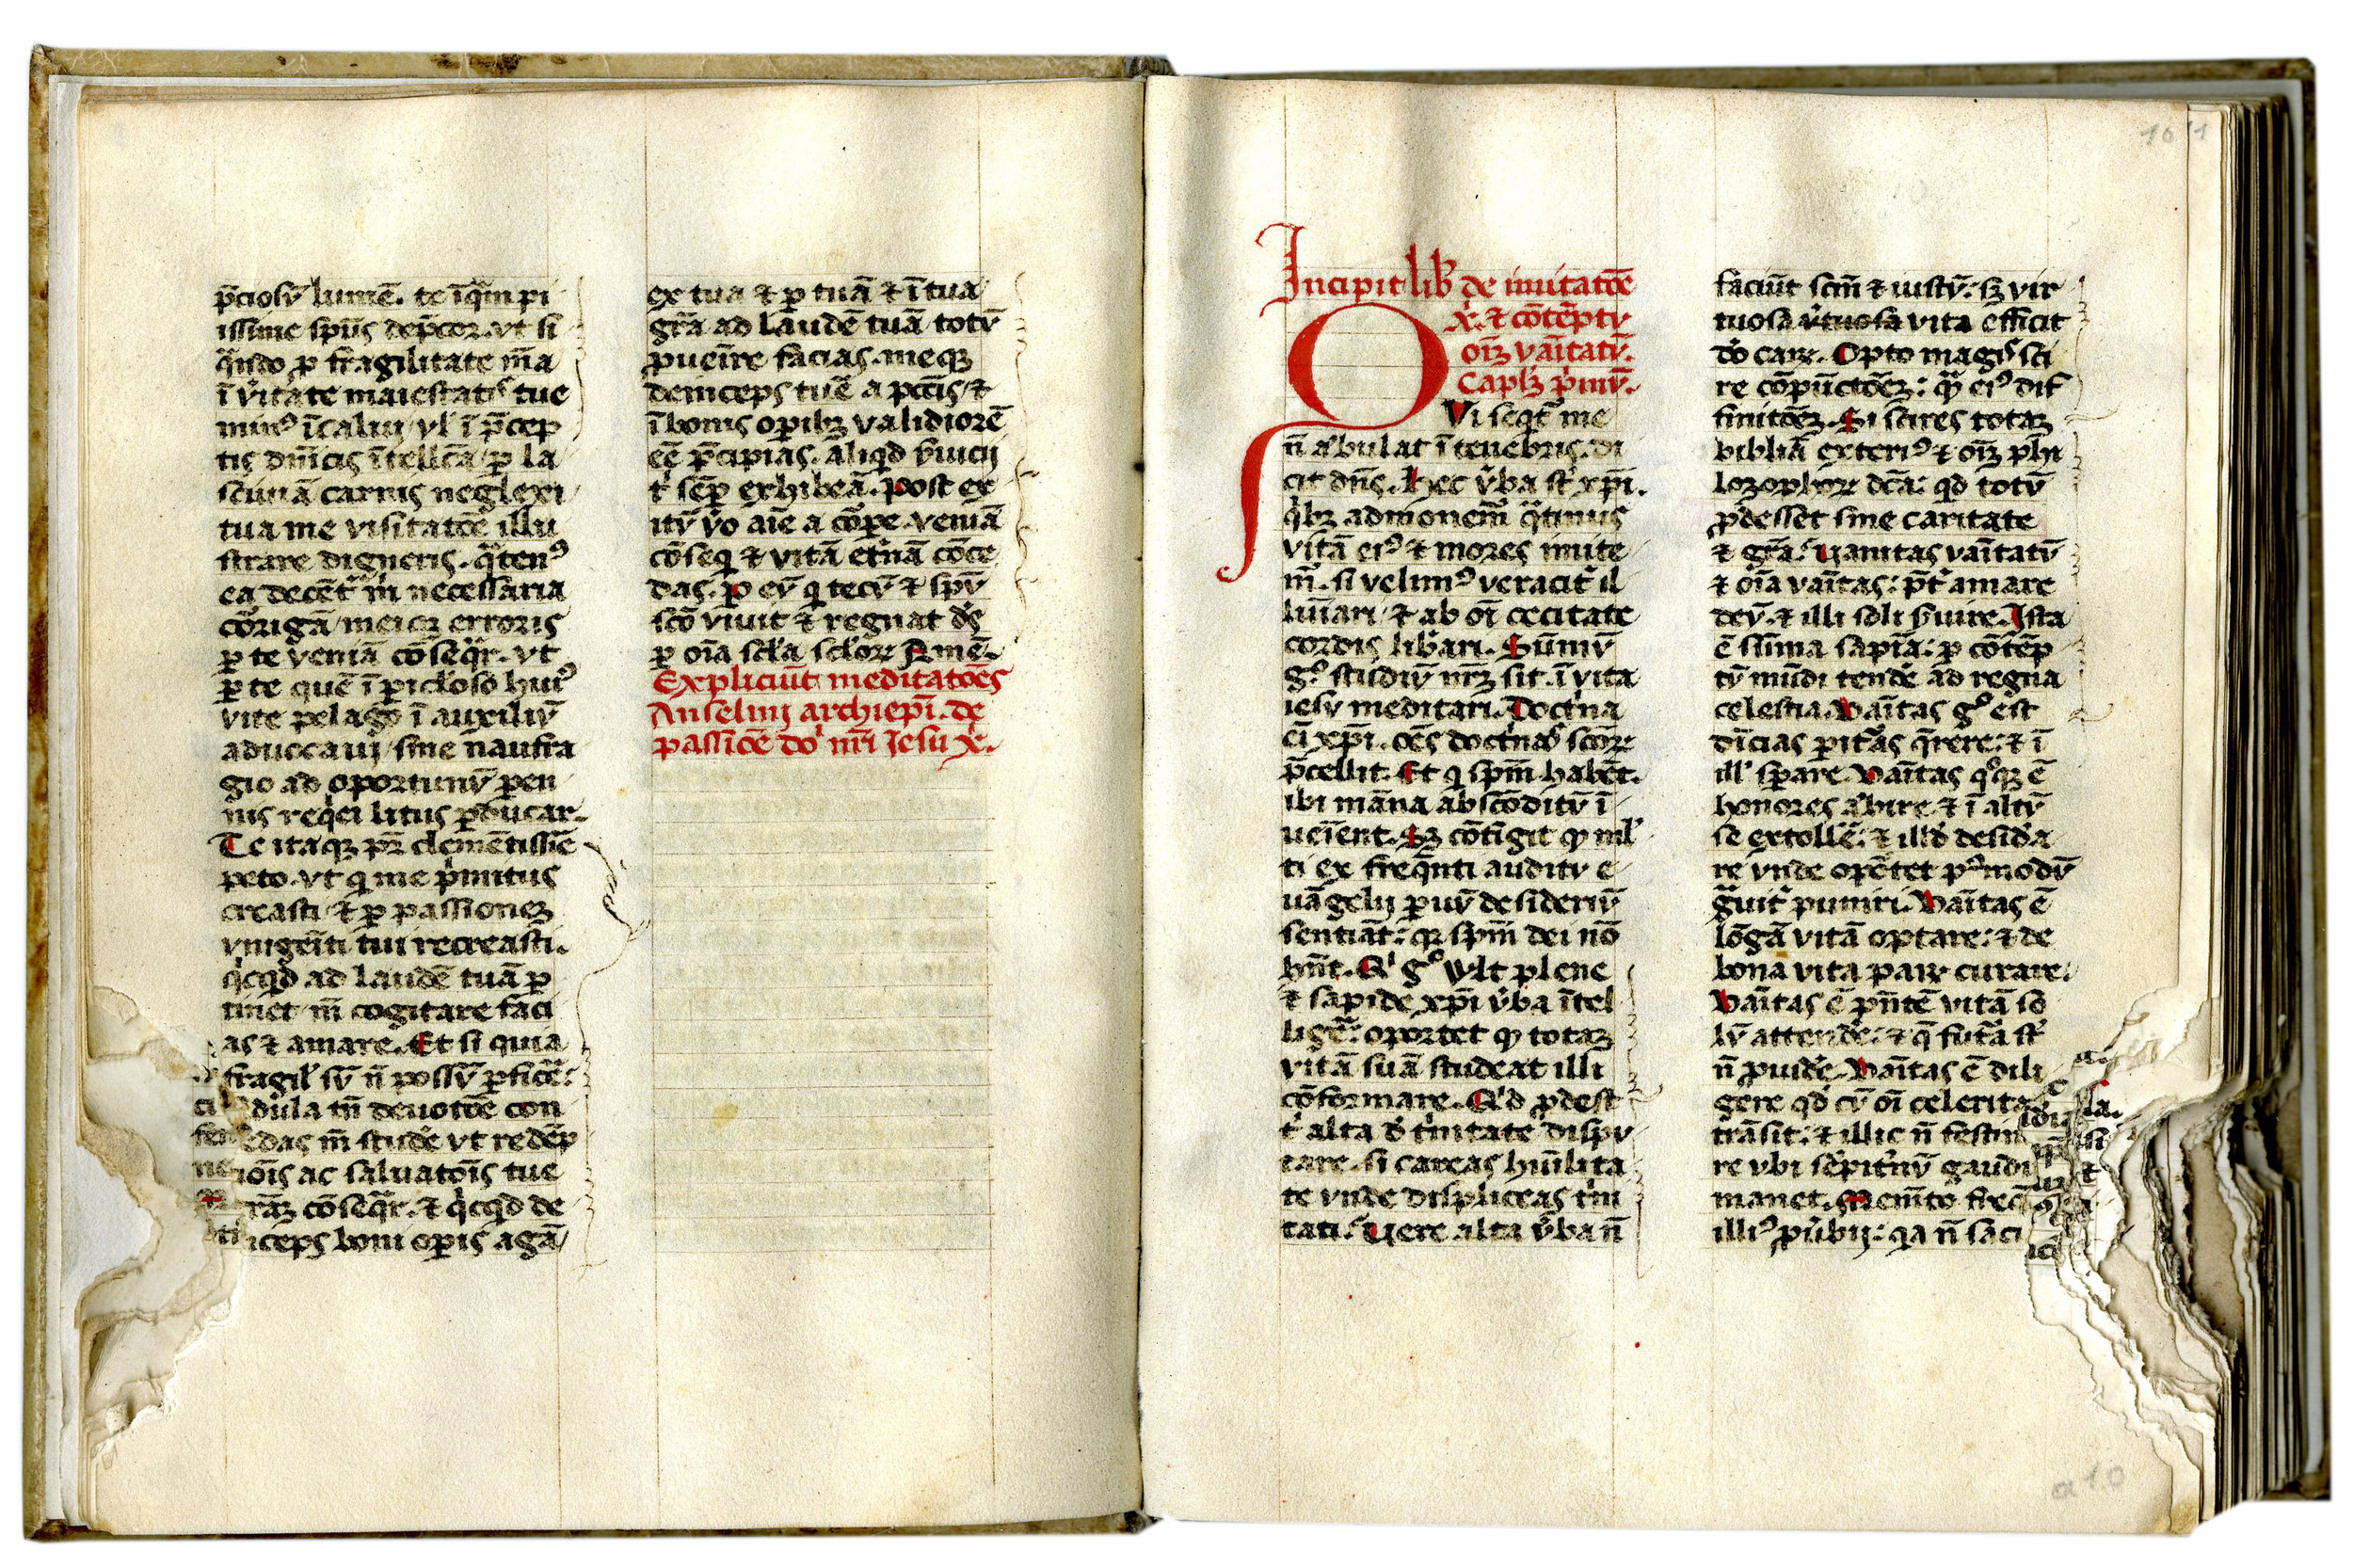 p̄ciosū lumē. te īqᷓm pi
issime spūs dep̄cor. vt si
qn̄do ꝑ fragilitate mͤa
ī v̓itate maiestatꝭ tue
minꝰ īcalui / vl̓ ī p̄cep
tis dn̄icis ītellc̄a / ꝑ la
sciuiā carnis neglexi
tua me visitatōe illu
strare digneris. qᷓtenꝰ
ea decēt̓ m̓ necessaria
cōrigā / meiᴏꝝ erroris
ꝑ te veniā cōseqᷓr. vt
ꝑ te quē ī ꝑicl̓oso huiꝰ
vite pelago ī auxiliū
aduocaui / sine naufra
gio ad oportunū ꝑen
nis reqͥei litus ꝑducar.
Te itaqꝫ pꝝ clemētissīe
peto. vt q me p̓mitus
creasti / ⁊ ꝑ passioneꝫ
vnigēiti tui recreasti.
qͥcqͥd ad laudē tuā ꝑ
tinet / m̄ cogitare faci
as ⁊ amare. Et si quia
fragil̓ sū n̄ possū ꝑficē:
dūla tn̄ deuotōe con
edas m̄ studē vt redēp
iōis ac saluatōis tue
raꝫ cōseqᷓr. ⁊ qͥcqͥd de
iceps boni oꝑis agā /
ex tua ⁊ ꝑ tuā ⁊ ī tua
grā ad laudē tuā totū
ꝓueīre facias. meqꝫ
deniceps tuē a pcc̄is / ⁊
ī bonis oꝑibꝫ validiorē
eē p̄cipias. aliqͥd s̓uicij
t̓ semꝑ exhibeā. Post ex
itū v̓o aīe a corꝑe. veniā
cōseq ⁊ vitā et̓nā cōce
das. ꝑ eū q tecū ⁊ spū
scō viuit ⁊ regnat dēs
ꝑ oīa scl̓a scl̓oꝝ Amē.
Expliciūt meditatōes
Anselmij archiepī. de
passiōe do nr̄i Jesu x̓.
Incipit lib̓ de imitatōe
x̓. ⁊ cōtēptu
oīꝫ vāitatū.
Caplꝫ p̓mū.
QVi seqͥt̓ me
n̄ ābulat ī tenebris. di
cit dn̄s. Hec v̓ba st̓ xp̄i.
qͥbꝫ admonem̄ qͣtinus
vitā eiꝰ ⁊ mores imite
m̄. si velimꝰ veracit̓ il
lūiari / ⁊ ab oī cecitate
cordis lib̓ari. Sūmū
gͦ studiū nr̄ꝫ sit. ī vita
iesu meditari. Doct̓na
eī xp̄i. oēs doct̓nas scōꝝ
p̄cellit. Et q spm̄ habēt.
ibi māna abscōditū ī
ueīent. Sꝫ cōtīgit ꝙ ml̓
ti ex freqᷓnti auditu e
uāgelij ꝑuū desideriū
sentiāt: qꝛ spm̄ dei nō
hn̄t. Qͥ gͦ vult plene
⁊ sapide xp̄i v̓ba ītel
ligē: oportet ꝙ totaꝫ
vitā suā studeat illi
cōformare. Qͥd ꝓdest
t̓ alta d̓ t̓nitate dispu
tare. si careas hūilita
te vnde displiceas t̓ni
tati. Uere alta v̓ba n̄
faciūt scm̄ ⁊ iustū: sꝫ vir
tuosa v̓tuosa vita efficit
dō caꝝ. Opto magꝭ sci
re cōpūctōeꝫ: qᷓ eiꝰ dif
finitōeꝫ. Si scires totaꝫ
bibliā exteriꝰ ⁊ oīꝫ phi
lozophoꝝ dc̄a: qͥd totū
ꝓdesset sine caritate
⁊ grā. Uanitas vāitatū
⁊ oīa vāitas: p̄t̓ amare
deū. ⁊ illi soli s̓uire. Ista
ē sūma sapīa: ꝑ cōtēp
tū mūdi tendē ad regna
celestia. Vāitas gͦ est
dīcias ꝑit̓as qᷓrere: ⁊ ī
ill̓ sꝑare. Vāitas qͦqꝫ ē
honores ābire ⁊ ī altū
se extollē: ⁊ ill̓d desid̓a
re vnde opētet pͦmodū
gᷓuit̓ puniri. Vāitas ē
lōgā vitā optare: ⁊ de
bona vita paꝝ curare.
Vāitas ē pn̄tē vitā so
lū attendē: ⁊ q̄ fut̓a st̓
n̄ ꝓuidē. Vāitas ē dili
gere qd̓ cū oī celerita
trāsit: ⁊ illic n̄ festin
re vbi sēpit̓nū gaudi
manet. Memēto freq̄
illiꝰ ꝓūbij: qa n̄ saci